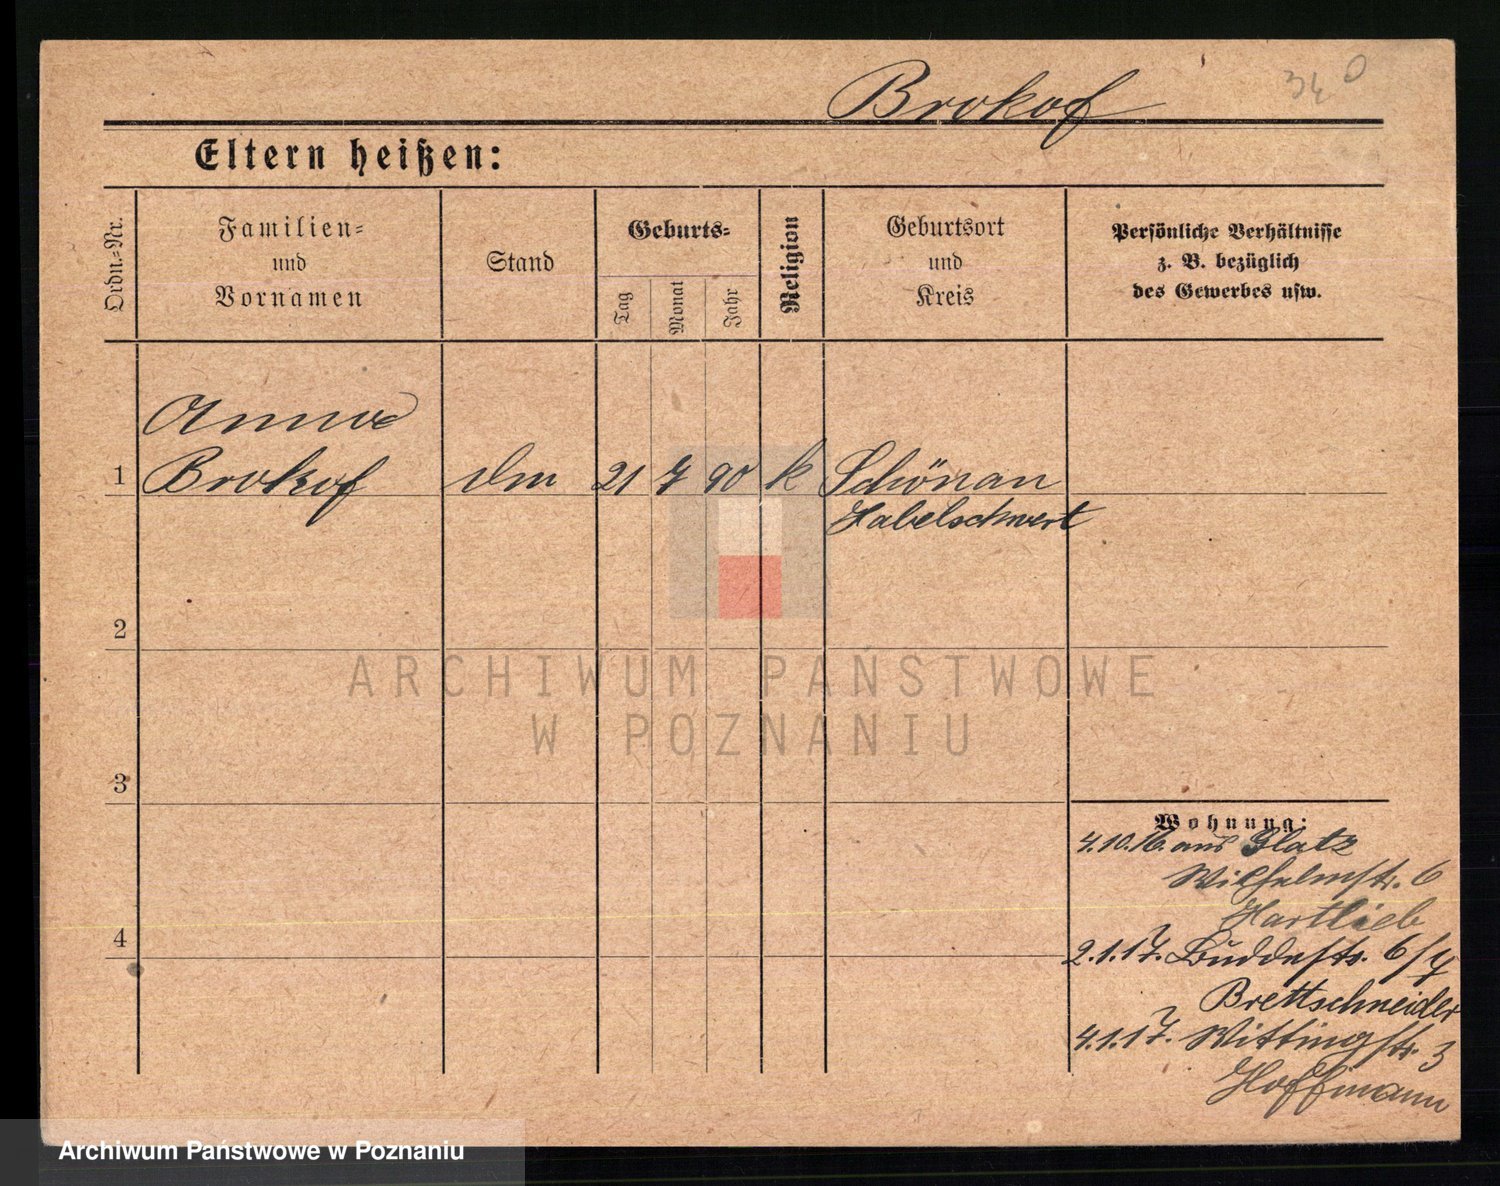 Brokof
340
Eltern heißen:
Ordn.-Nr.
Familien-
und
Vornamen
Stand
Geburts-
Tag
Monat
Jahr
Religion
Geburtsort
und
Kreis
Persönliche Verhältnisse
z. B. bezüglich
des Gewerbes usw.
Anna
1 Brokof 21 7 90 k Schönau
Habelschwert
2
3
4
ARCHIWUM PAŃSTWOWE
W POZNANIU
Wohnung:
4.10.16. aus Glatz
Wilhelmstr. 6
Hartlieb
2.1.17. Buddestr. 6/7
Brettschneider
4.1.17. Wittingstr. 3
Hoffmann
Archiwum Państwowe w Poznaniu